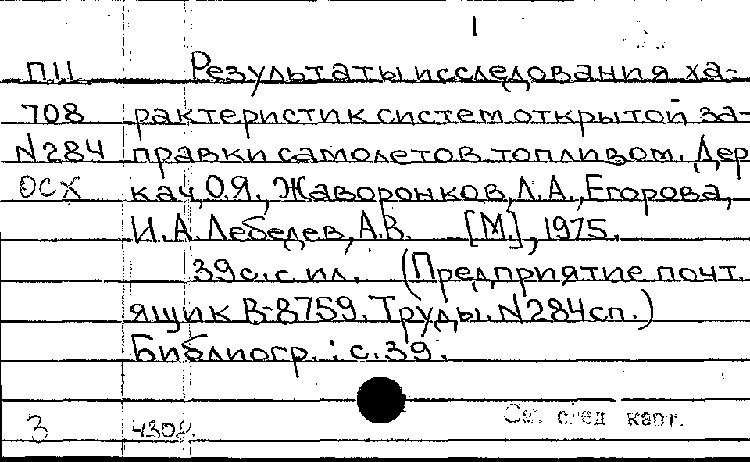 1
П11 Результаты исследования ха-
708 рактеристик систем открытой за-
N284 правки самолетов топливом. Дер
ОСХ кач, О.Я., Жаворонков, Л.А., Егорова,
И.А. Лебедев, А.В. [М.], 1975.
39 с. с ил. (Предприятие почт.
ящик В-8759. Труды. N284сп.)
Библиогр.: с. 39.
См. след карт.
3 4308.